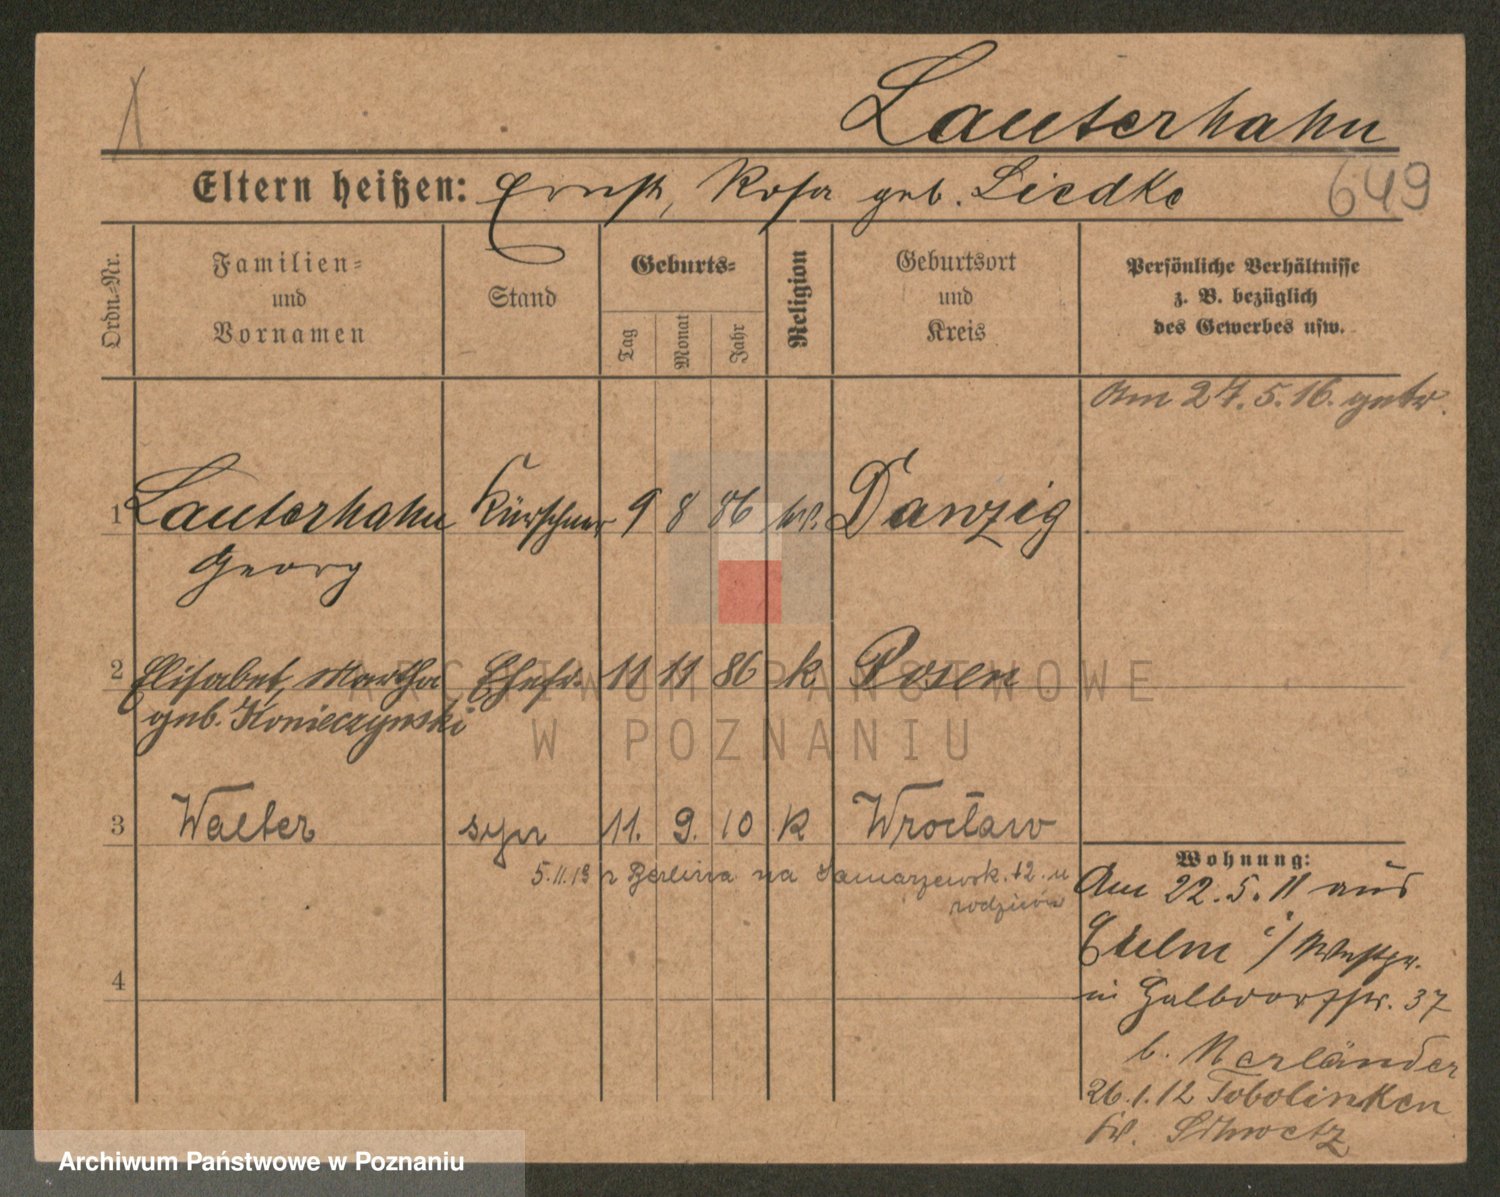 Lauterhahn
Eltern heißen: Ernst, Rosa geb. Liedke
649
Ordn.-Nr.
Familien-
und
Vornamen
Stand
Geburts-
Tag
Monat
Jahr
Religion
Geburtsort
und
Kreis
Persönliche Verhältnisse
z. B. bezüglich
des Gewerbes usw.
Am 27.5.16. getr.
1 Lauterhahn Kürschner 9 8 86 Danzig
Georg
2 Elisabet, Martha Ehefr. 11 11 86 k Posen
geb. Konieczynski
ARCHIWUM PAŃSTWOWE
W POZNANIU
3 Walter syn 11. 9. 10 k Wrocław
5.11.19 z Berlina na Samarzewsk. 12. u
rodziców
4
Wohnung:
Am 22.5.11 aus
Culm i/ Westpr.
in Halbdorfstr. 37
b. Nerländer
26.1.12 Tobolinken
Kr. Schwetz
Archiwum Państwowe w Poznaniu